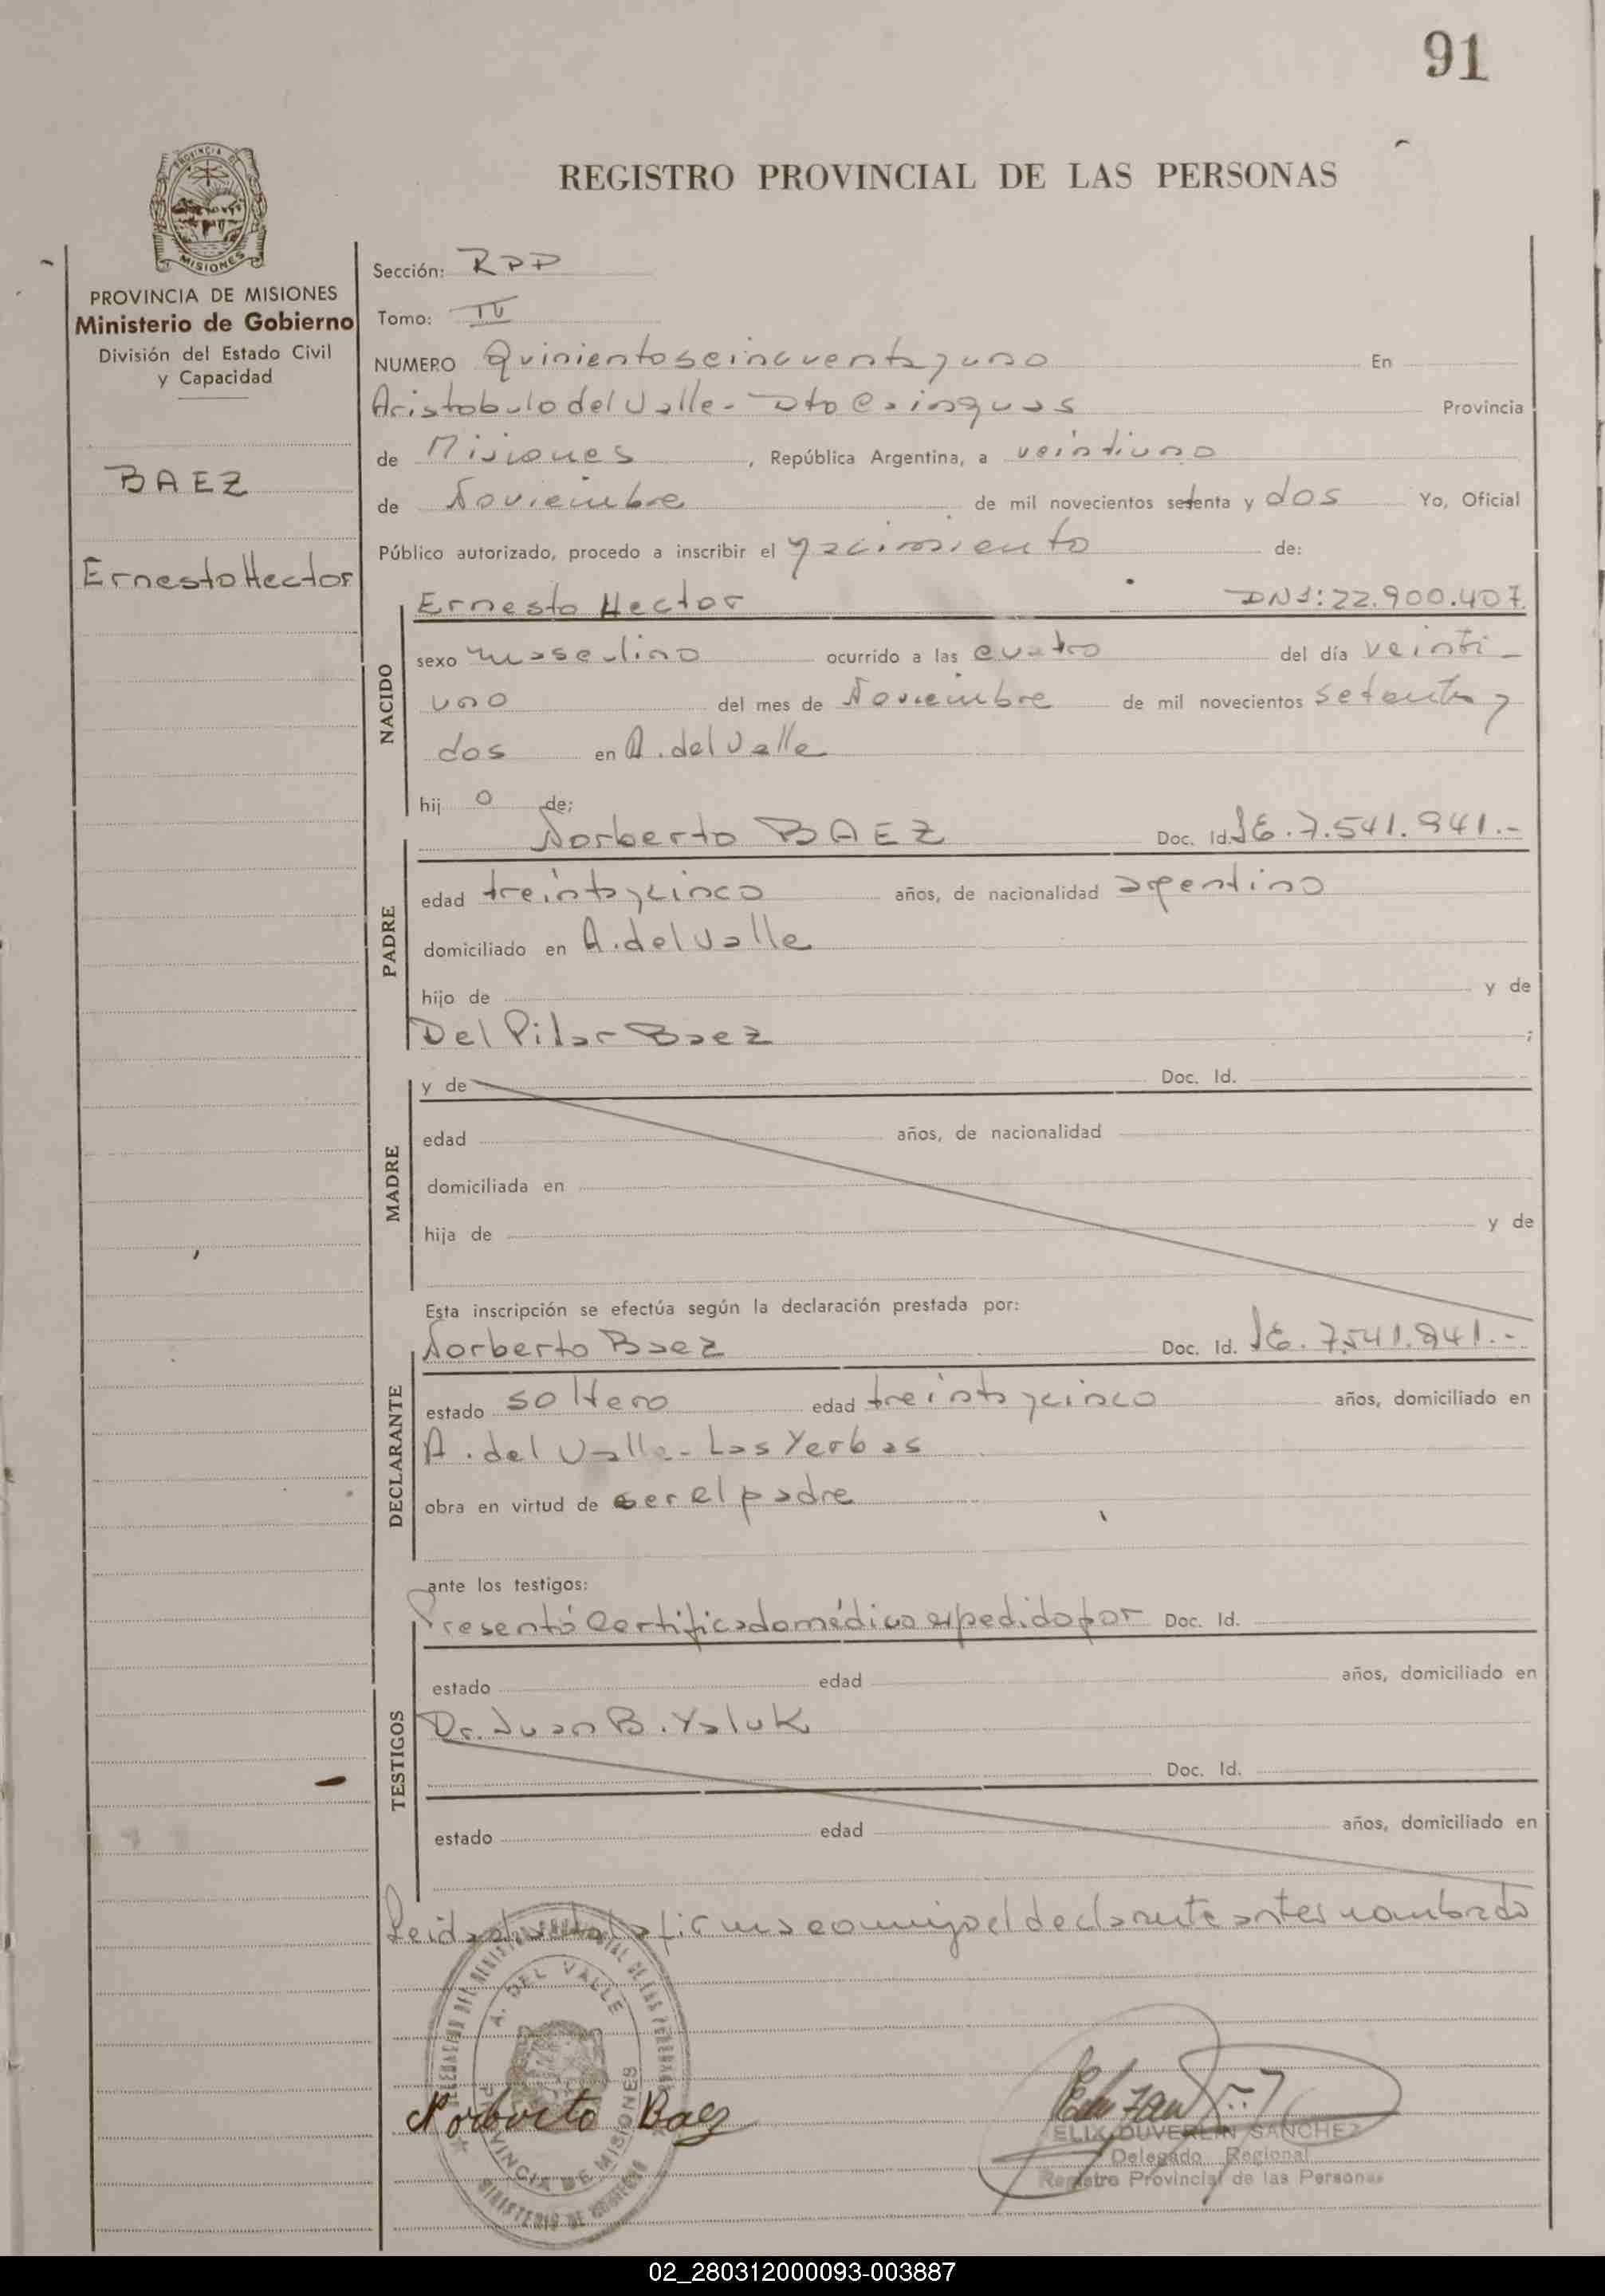 91
REGISTRO PROVINCIAL DE LAS PERSONAS
PROVINCIA DE
MISIONES
PROVINCIA DE MISIONES
Ministerio de Gobierno
División del Estado Civil
y Capacidad
BAEZ
Ernesto Hector
Sección: RPP
Tomo: IV
NUMERO Quinientos cincuenta y uno En
Aristobulo del Valle - Dto Cainguas Provincia
de Misiones, República Argentina, a veintiuno
de Noviembre de mil novecientos setenta y dos Yo, Oficial
Público autorizado, procedo a inscribir el nacimiento de:
NACIDO
Ernesto Hector DNI: 22.900.407
sexo masculino ocurrido a las cuatro del día veinti-
uno del mes de Noviembre de mil novecientos setenta y
dos en A. del Valle
hij o de;
PADRE
Norberto BAEZ Doc. Id. 7.541.941.-
edad treinta y cinco años, de nacionalidad argentino
domiciliado en A. del Valle
hijo de y de
Del Pilar Baez ;
MADRE
y de Doc. Id.
edad años, de nacionalidad
domiciliada en
hija de y de
Esta inscripción se efectúa según la declaración prestada por:
DECLARANTE
Norberto Baez Doc. Id. 7.541.941.-
estado soltero edad treinta y cinco años, domiciliado en
A. del Valle - Las Yerbas
obra en virtud de ser el padre
ante los testigos:
TESTIGOS
Presentó Certificado médico expedido por Doc. Id.
estado edad años, domiciliado en
Dr. Juan B. Yaluk
Doc. Id.
estado edad años, domiciliado en
Leida el acta la firma conmigo el declarante antes nombrado
A. DEL VALLE
PROVINCIA DE MISIONES
MINISTERIO DE GOBIERNO
Norberto Baez
ELIX DUVERLIN SANCHEZ
Delegado Regional
Registro Provincial de las Personas
02_280312000093-003887